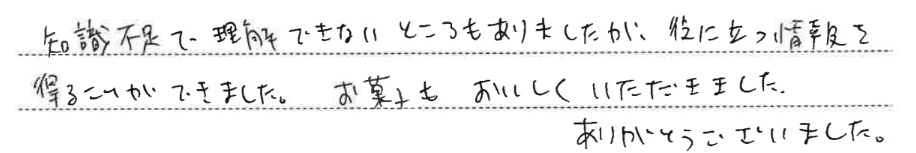 知識不足で理解できないところもありましたが、役に立つ情報を
得ることができました。 お菓子も おいしくいただきました。
ありがとうございました。